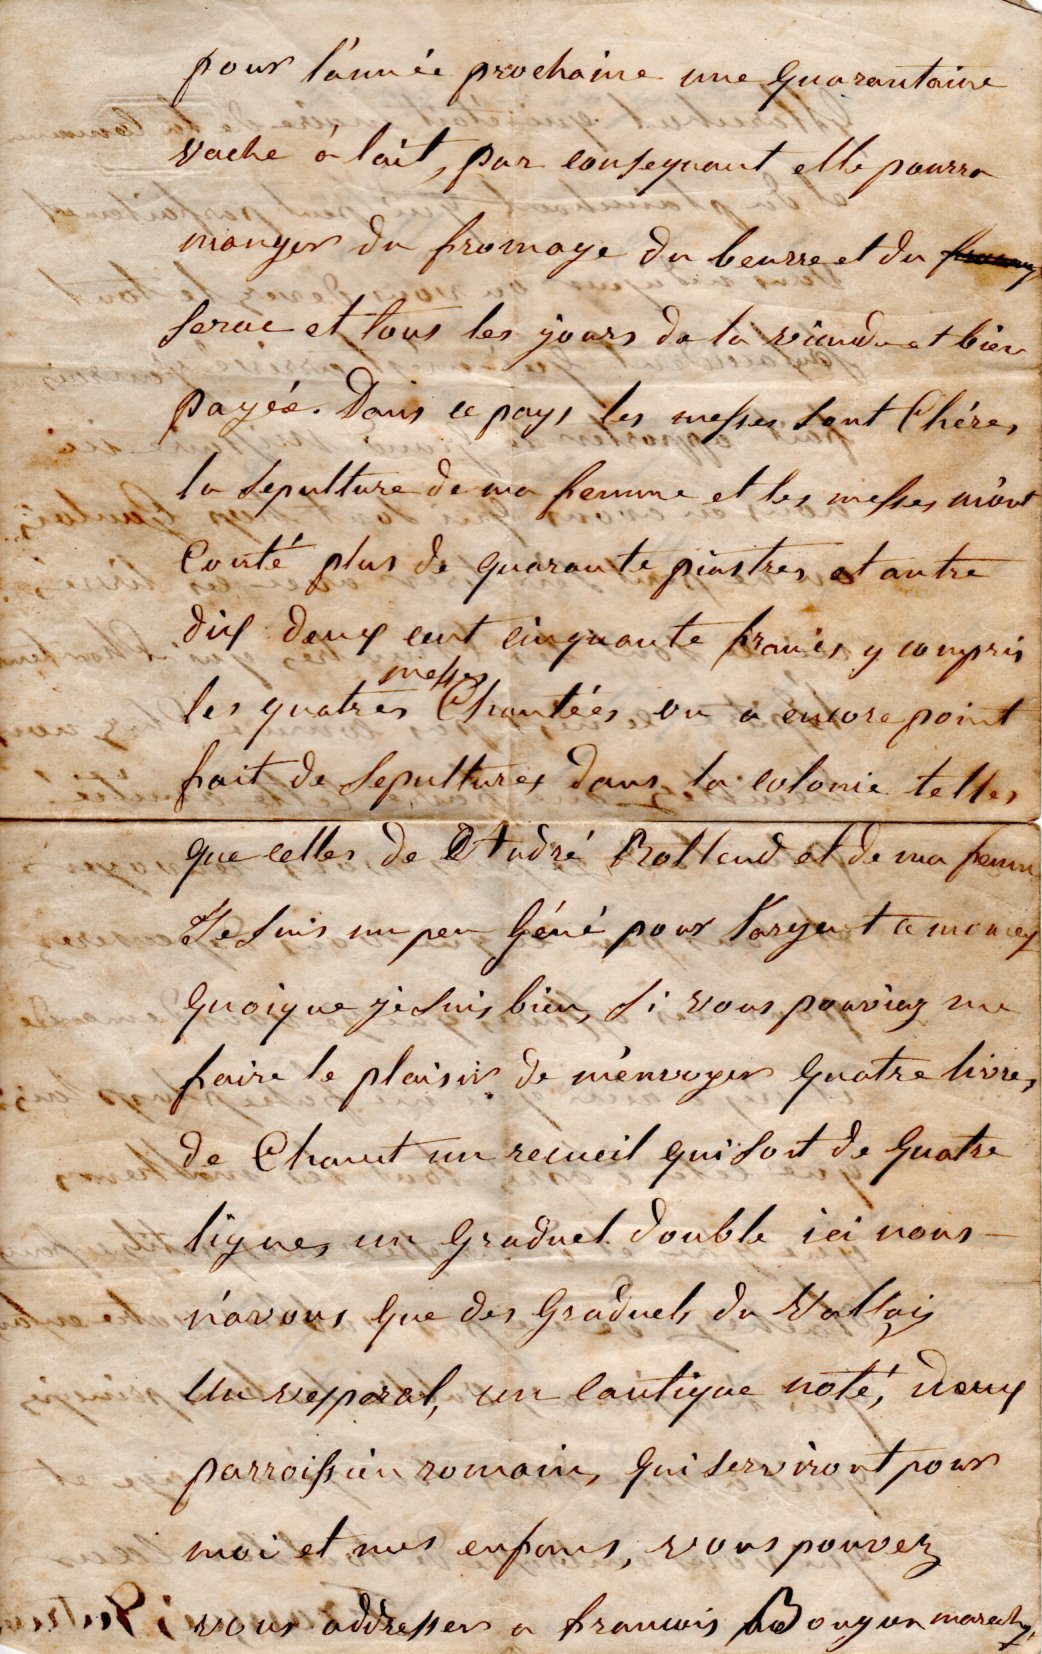 pour l'année prochaine une quarantaine
vache à lait, par consequant elle pourra
manger du fromage du beurre et du
serac et tous les jours de la viande et bien
payée. Dans ce pays les messes sont Chéres
la sepulture de ma femme et les messes m'ont
Couté plus de quarante piastres et autre
dix deux cent cinquante francs y compris
les quatres messes Chantées on a encore point
fait de sepultures dans la colonie telles
que celles de André Rolland et de ma femme
Je suis un peu Géné pour l'argent
quoique je suis bien, si vous pouviez me
faire le plaisir de m'énvoyer quatre livres
de Chant un recueil qui soit de quatre
lignes un Graduel double ici nous
n'avons que des Graduels du Vallais
Un vesperal, un Cantique noté, deux
parroissien romain, qui serviront pour
moi et mes enfans, vous pouvez
vous addresser a francois